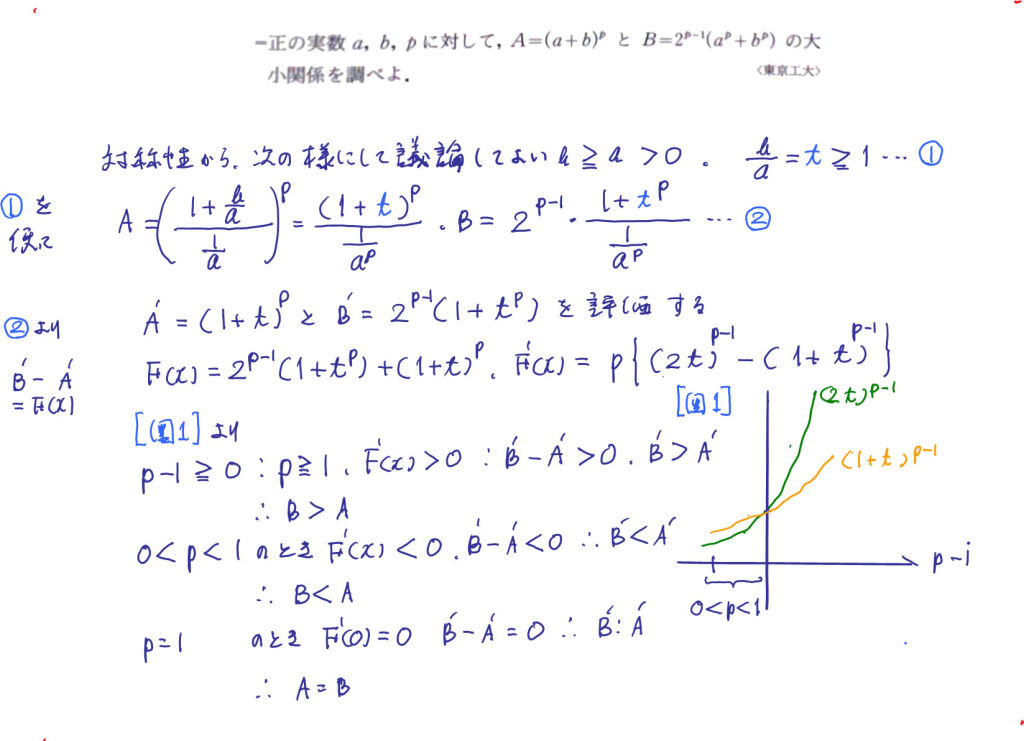 正の実数 a, b, p に対して, A=(a+b)^p と B=2^{p-1}(a^p+b^p) の大
小関係を調べよ. 〈東京工大〉
対称性から, 次の様にして議論してよい b ≧ a > 0 . b/a = t ≧ 1 … ①
①を使って A = ((1+b/a)/(1/a))^p = (1+t)^p/(1/a^p) . B = 2^{p-1}・(1+t^p)/(1/a^p) … ②
②より A' = (1+t)^p と B' = 2^{p-1}(1+t^p) を評価する
B'-A' = F(x) F(x) = 2^{p-1}(1+t^p)+(1+t)^p. F'(x) = p{(2t)^{p-1} - (1+t)^{p-1}}
[図1] より
p-1 ≧ 0 : p ≧ 1. F'(x) > 0 : B'-A' > 0. B' > A'
∴ B > A
0 < p < 1 のとき F'(x) < 0. B'-A' < 0 ∴ B' < A'
∴ B < A
p=1 のとき F'(0) = 0 B'-A' = 0 ∴ B': A'
∴ A = B
[図1]
(2t)^{p-1}
(1+t)^{p-1}
p-1
0<p<1